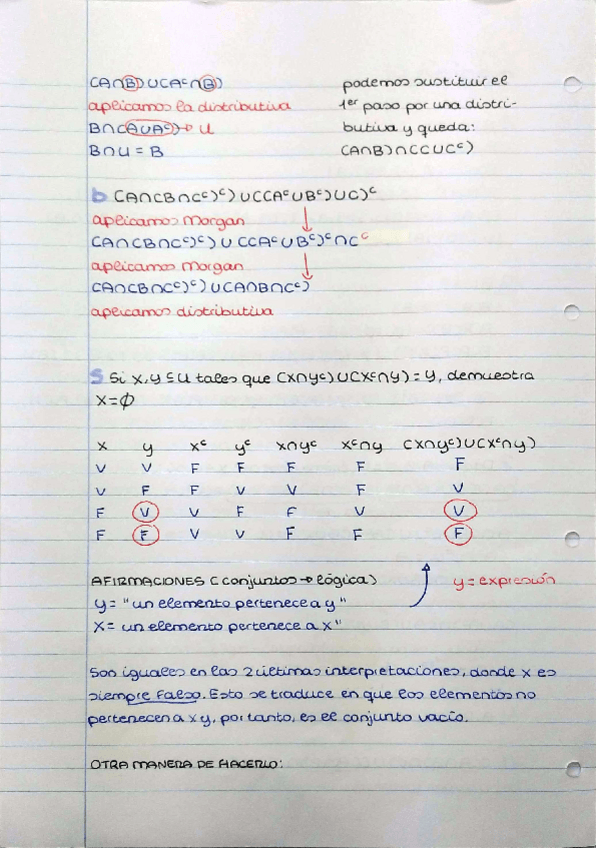 (A∩B)∪(Aᶜ∩B)
aplicamos la distributiva
B∩(A∪Aᶜ)→ U
B∩U = B
podemos sustituir el
1er paso por una distri-
butiva y queda:
(A∩B)∩(C∪Cᶜ)
b (A∩(B∩Cᶜ)ᶜ)∪((Aᶜ∪Bᶜ)∪C)ᶜ
aplicamos Morgan
(A∩(B∩Cᶜ)ᶜ)∪((Aᶜ∪Bᶜ)ᶜ∩Cᶜ
aplicamos Morgan
(A∩(B∩Cᶜ)ᶜ)∪(A∩B∩Cᶜ)
aplicamos distributiva
5 Si X,Y⊆U tales que (X∩Yᶜ)∪(Xᶜ∩Y)=Y, demuestra
X=∅
X Y Xᶜ Yᶜ X∩Yᶜ Xᶜ∩Y (X∩Yᶜ)∪(Xᶜ∩Y)
V V F F F F F
V F F V V F V
F V V F F V V
F F V V F F F
AFIRMACIONES (conjuntos→lógica)
Y= "un elemento pertenece a y"
X= un elemento pertenece a x"
y=expresión
Son iguales en las 2 últimas interpretaciones, donde x es
siempre Falso. Esto se traduce en que los elementos no
pertenecen a x y, por tanto, es el conjunto vacío.
OTRA MANERA DE HACERLO: